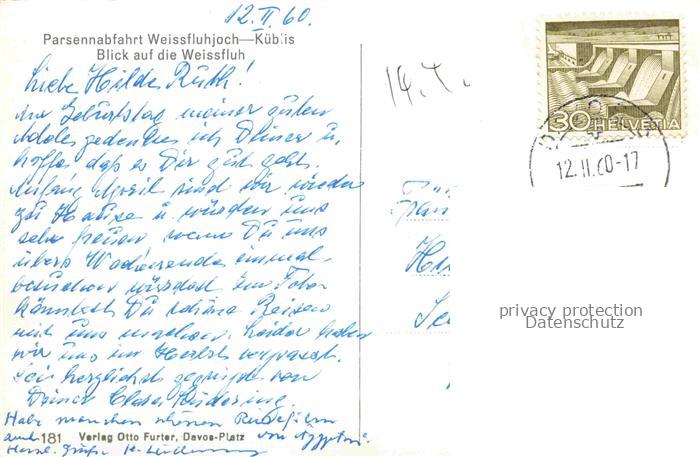 12. II. 60.
Parsennabfahrt Weissfluhjoch—Küblis
Blick auf die Weissfluh
Liebe Hilde Ruth!
Am Geburtstag meiner guten
gedenke ich Deiner u.
hoffe daß es Dir gut geht.
Anfang April sind wir wieder
zu Hause u. würden uns
sehr freuen wenn Du uns
übers Wochenende einmal
besuchen würdest. Im
könntest Du schöne Reisen
mit uns machen. Leider haben
wir uns im Herbst verpasst.
Sei herzlichst gegrüßt von
Deiner
Habe manchen schönen
auch von Aegypten.
181 Verlag Otto Furter, Davos-Platz
Herzl. Grüße
14.
30 HELVETIA
12.II.60-17
privacy protection
Datenschutz